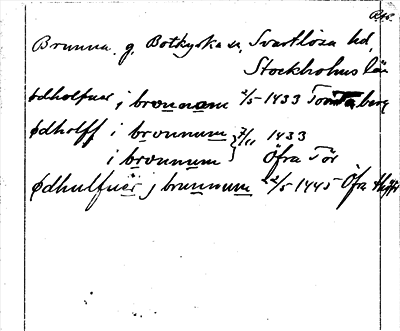 Brunna, g. Botkyrka sn, Svartlösa hd,
Stockholms län
ødholfuer j bronnom 2/5 1433
ødholff i bronnum } 7/11 1433
i bronnum Öfra Tör
ødhulfuer j brunnum 22/5 1445 Öfra